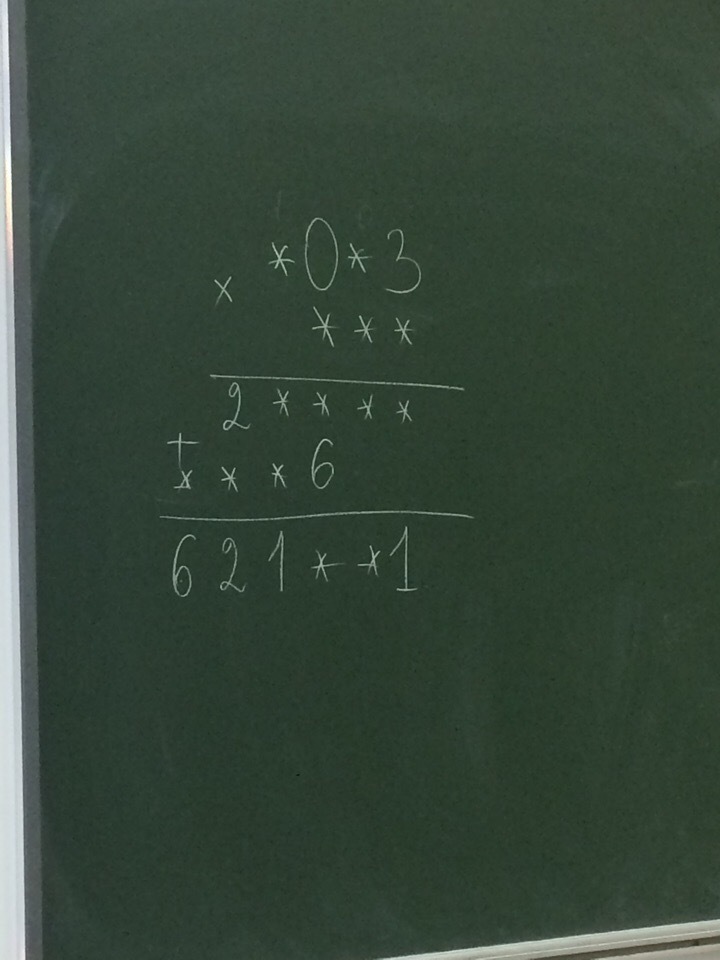 *0*3
×
***
2****
+
***6
621**1